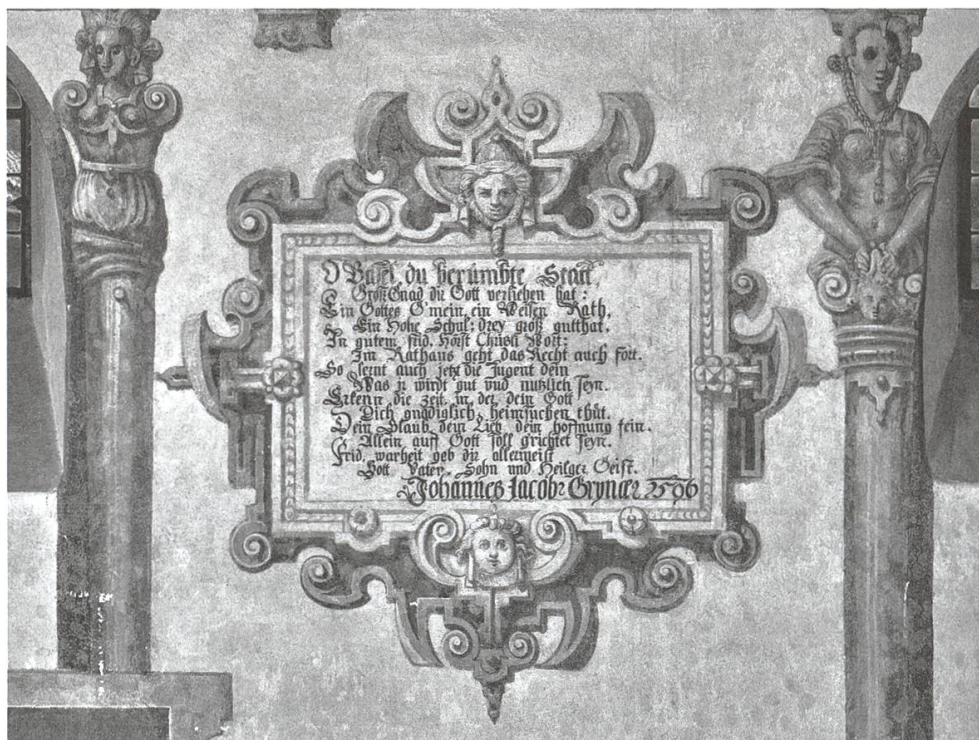 O Basel du berümbte Statt,
Groß Gnad dir Gott verliehen hat:
Ein Gottes G'mein, ein Weisen Rath,
Ein Hohe Schul: drey groß gutthat.
In gutem frid, Hörst Christi Wort:
Im Rathaus geht das Recht auch fort.
So lernt auch jetzt die Jugent dein
Was ir wirdt gut vnd nutzlich seyn.
Erkenn die zeit in der dein Gott
Dich gnädiglich heimsuchen thůt.
Dein Glaub, dein Lieb, dein hoffnung fein.
Allein auff Gott soll grichtet seyn.
Frid, warheit geb dir allermeist
Gott Vater, Sohn und Heilger Geist.
Johannes Jacobs Grynæer 1596